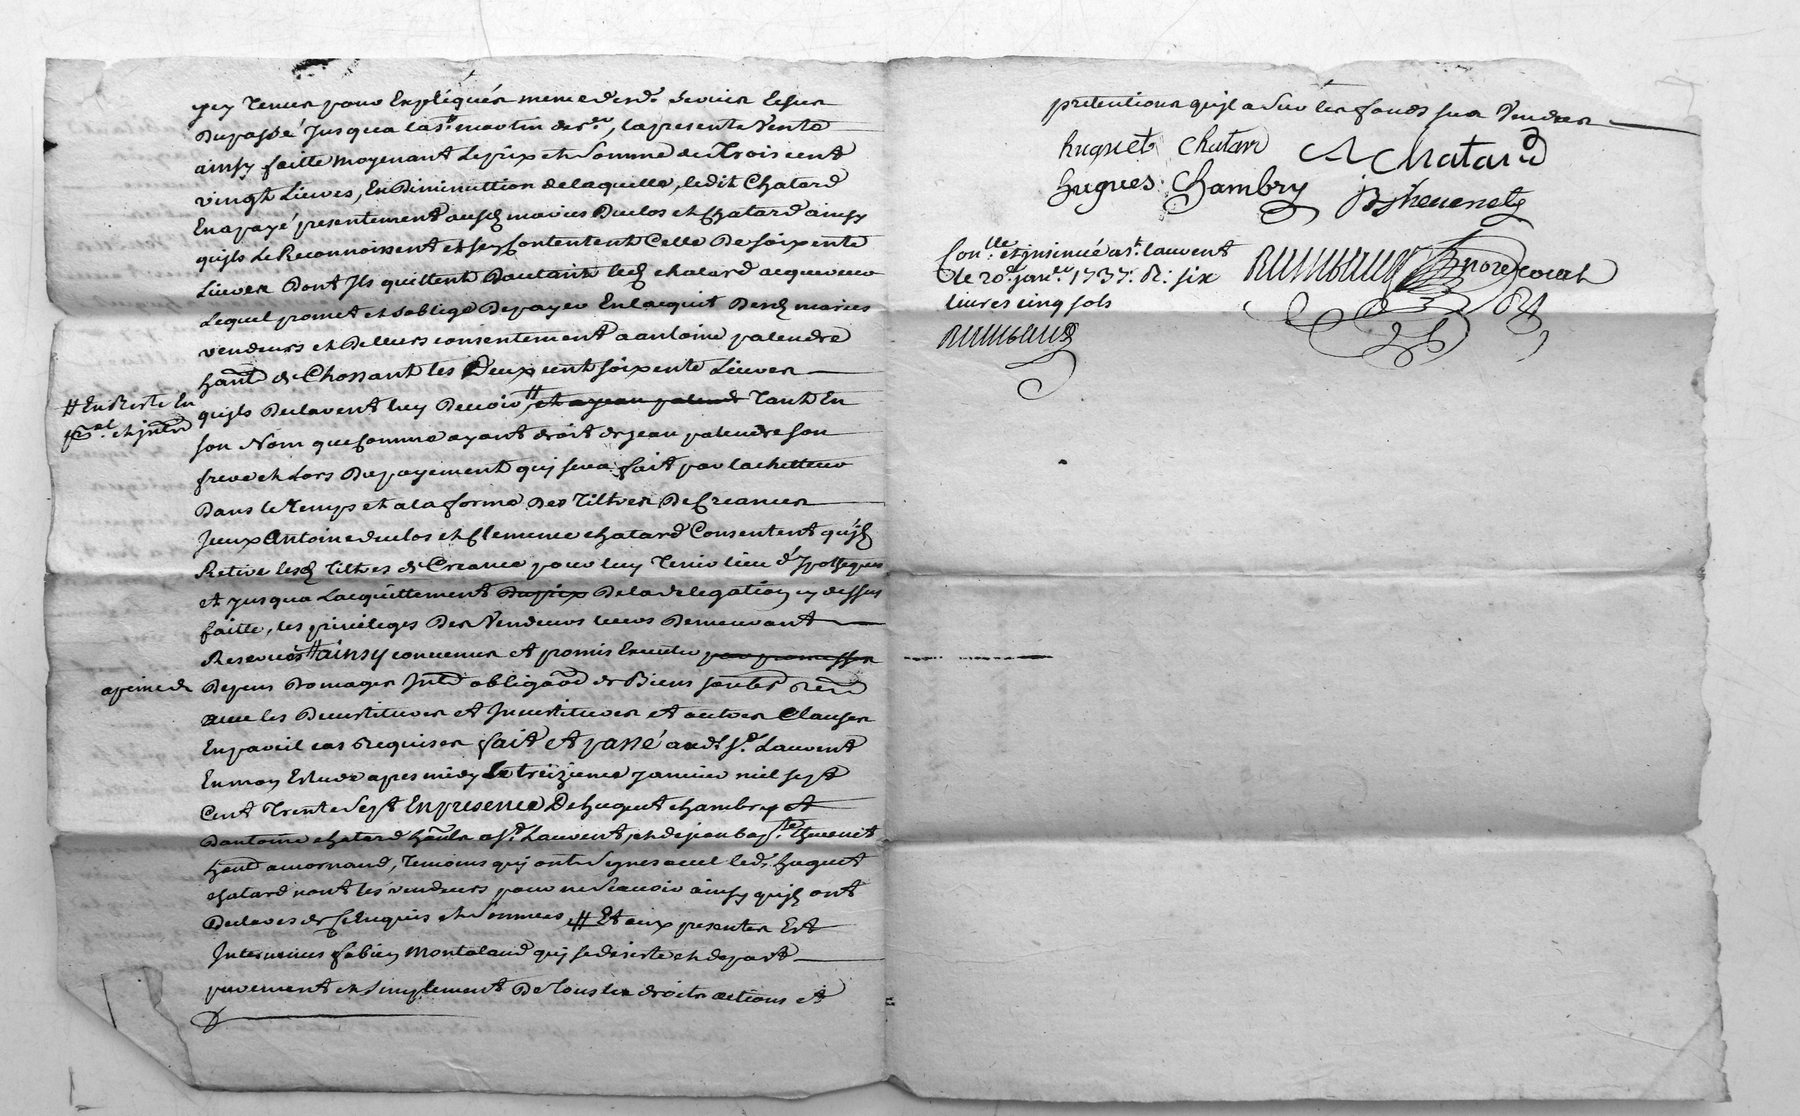 icy tenus pour Expliqués meme desd. servis Echus
Dupassé Jusqua la st martin der.re, la presente Vente
ainsy faitte moyenant Le prix et Somme de Trois cent
vingt Livres, En Diminuttion de laquelle, ledit Chatard
En a payé presentement ausd mariés Duclos et Chatard ainsy
quils Le Reconnoissent et sen Contentent Celle De soixente
Livres Dont Ils quittent Dautant led chatard acquereur
Lequel promet et soblige De payer En lacquit Desd mariés
vendeurs et De leurs consentement a antoine palendre
hant de Chossant les Deux cent soixente Livres
# En Reste En
quils Declarent luy Devoir # et a jean palend Tant En
p.al et intd
son Nom que Comme ayant droit de jean palendre son
frere et Lors Dupayement qui sera fait par lachetteur
Dans le Temps et a la forme Des Tiltres De Creances
Iceux Antoine duclos et Clemence chatard Consentent quil
Retire lesd Tiltres de Creance pour luy Tenir lieu d'ypotheques
et Jusqua Lacquittement Du prix De la delegation cy dessus
faitte, les privileges Des Vendeurs leurs Demeurant
Reservés # ainsy convenus et promis Executer par promesses
a peine de
Depens Domages Intd obligaod de Biens soubs rend
avec les Devestitures et Investitures et autres Clauses
En pareil cas Requises fait et passé aud st. Laurent
En mon Estude apres midy Le treizieme janvier mil sept
Cent Trente Sept En presence De huguet chambry et
Dantoine chatard hants a st. Laurent, et de jean bap.te thevenet
hant a mornand, Temoins qui ont Signes avec led. huguet
chatard non les vendeurs pour ne Scavoir ainsy quils ont
Declarés de ce Enquis et Sommés # Et aux presentes Est
Intervenus fabien Montaland qui se desiste et depart
purement et Simplement De tous les droits actions et
pretentions quil a Sur les fonds sus Vendus
huguet chatard A Chatard
hugues Chambry JB thevenet
Con.lle et insinué a st. laurent
le 20.e janv.er 1737. R: six
livres cinq sols